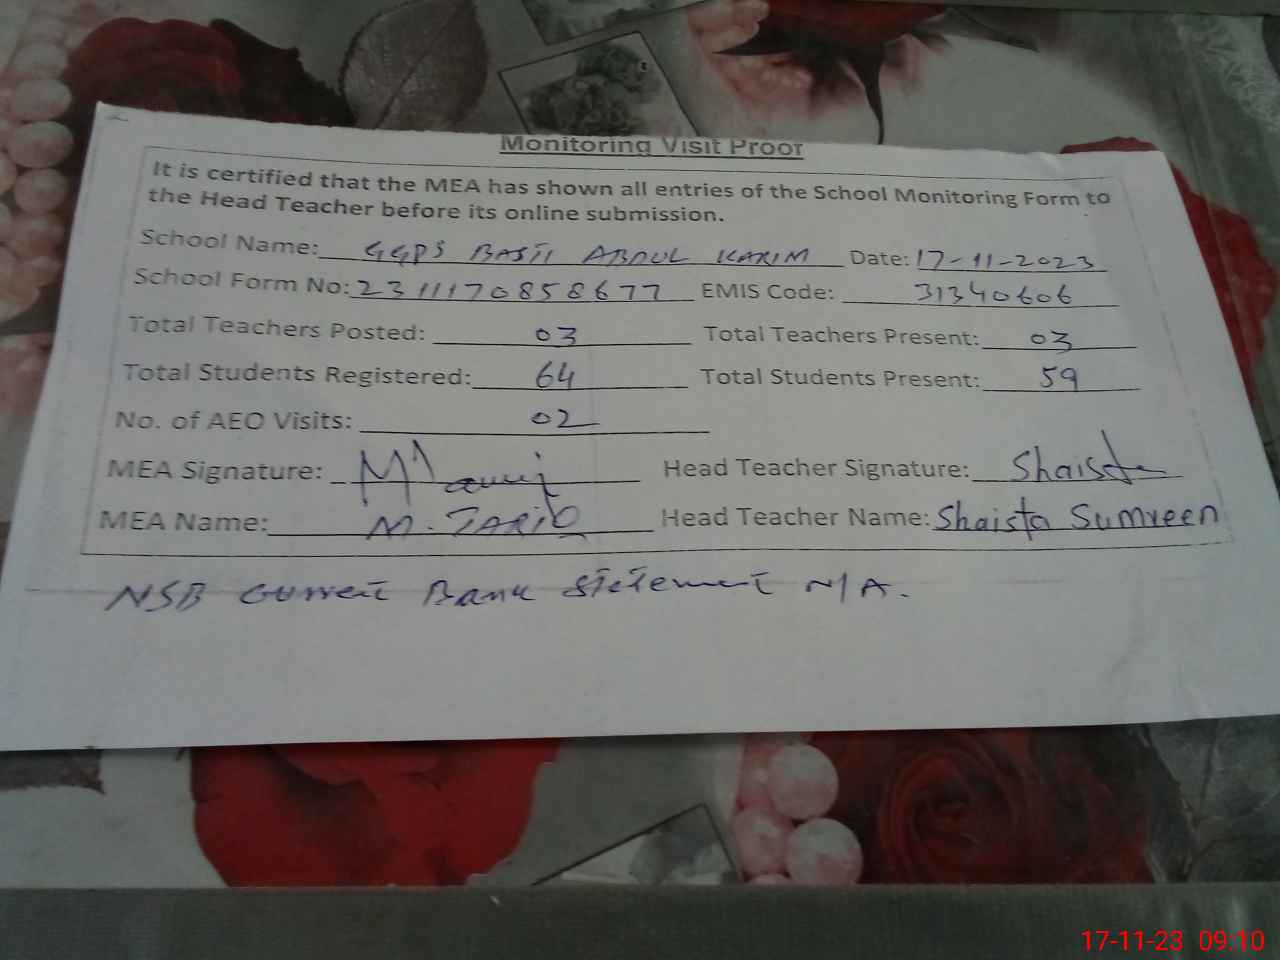 Monitoring Visit Proof
It is certified that the MEA has shown all entries of the School Monitoring Form to
the Head Teacher before its online submission.
School Name: GGPS BASTI ABDUL KARIM Date: 17-11-2023
School Form No: 2311170858677 EMIS Code: 31340606
Total Teachers Posted: 03 Total Teachers Present: 03
Total Students Registered: 64 Total Students Present: 59
No. of AEO Visits: 02
MEA Signature: Head Teacher Signature: Shaista
MEA Name: M. TARIQ Head Teacher Name: Shaista Sumreen
NSB Current Bank Statement N/A.
17-11-23 09:10